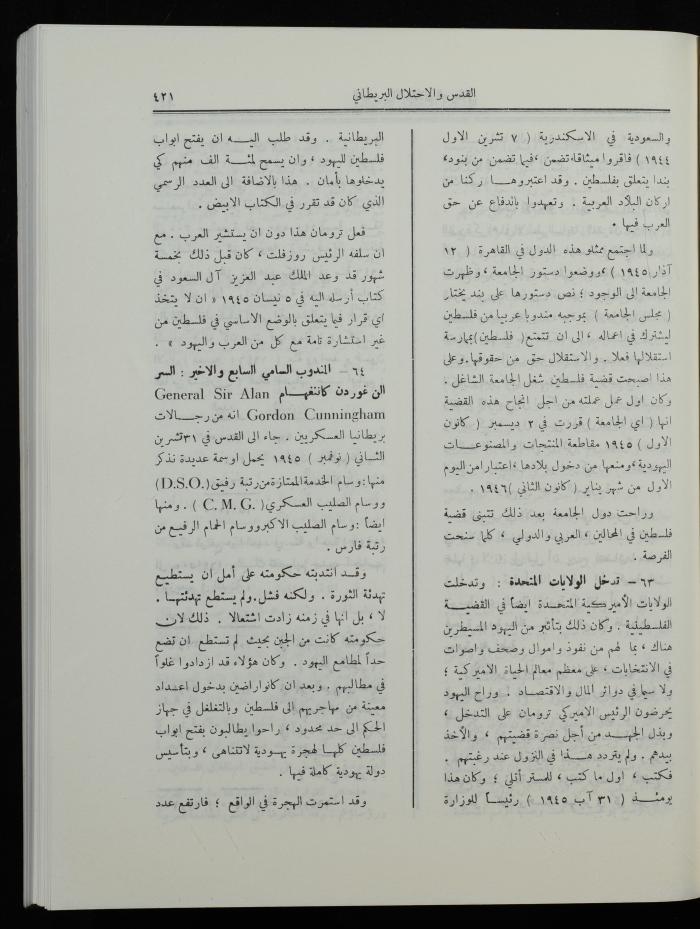 القدس والاحتلال البريطاني
٤٢١
والسعودية في الاسكندرية ( ٧ تشرين الاول
١٩٤٤ ) فاقروا ميثاقا، تضمن ، فيما تضمن من بنود،
بندا يتعلق بفلسطين . وقد اعتبروهــا ركنا من
اركان البلاد العربية . وتعهدوا بالدفاع عن حق
العرب فيها .
ولما اجتمع ممثلو هذه الدول في القاهرة ( ١٢
آذار ١٩٤٥ ) ، ووضعوا دستور الجامعة ، وظهرت
الجامعة الى الوجود ؛ نص دستورها على بند يختار
( مجلس الجامعة ) بموجبه مندوبا عربيا من فلسطين
ليشترك في اعماله ، الى ان تتمتع ( فلسطين ) بممارسة
استقلالها فعلا . والاستقلال حق من حقوقها. وعلى
هذا اصبحت قضية فلسطين شغل الجامعة الشاغل .
وكان اول عمل عملته من اجل انجاح هذه القضية
انها ( اي الجامعة ) قررت في ٢ ديسمبر ( كانون
الاول ) ١٩٤٥ مقاطعة المنتجات والمصنوعــات
اليهودية ، ومنعها من دخول بلادها ، اعتبارا من اليوم
الاول من شهر يناير ( كانون الثاني ) ١٩٤٦ .
وراحت دول الجامعة بعد ذلك تتبنى قضية
فلسطين في المجالين ، العربي والدولي ، كلما سنحت
الفرصة .
٦٣ – تدخل الولايات المتحدة : وتدخلت
الولايات الأميركية المتحــدة ايضاً في القضيــة
الفلسطينية . وكان ذلك بتأثير من اليهود المسيطرين
هناك ، بما لهم من نفوذ واموال وصحف واصوات
في الانتخابات ، على معظم معالم الحياة الاميركية ؛
ولا سيما في دوائر المال والاقتصــاد . وراح اليهود
يحرضون الرئيس الاميركي ترومان على التدخل ،
وبذل الجهــد من أجل نصرة قضيتهم ، والأخذ
بيدهم . ولم يتردد هــذا في النزول عند رغبتهم .
فكتب ، اول ما كتب ، للمستر أتلي ؛ وكان هذا
يومئــذ ( ٣١ آب ١٩٤٥ ) رئيساً للوزارة
البريطانية . وقد طلب اليــه ان يفتح ابواب
فلسطين لليهود ، وان يسمح لمئــة الف منهم كي
يدخلوها بأمان . هذا بالاضافة الى العدد الرسمي
الذي كان قد تقرر في الكتاب الابيض .
فعل ترومان هذا دون ان يستشير العرب . مع
ان سلفه الرئيس روزفلت ، كان قبل ذلك بخمسة
شهور قد وعد الملك عبد العزيز آل السعود في
كتاب أرسله اليه في ٥ نيسان ١٩٤٥ « ان لا يتخذ
اي قرار فيما يتعلق بالوضع الاساسي في فلسطين من
غير استشارة تامة مع كل من العرب واليهود » .
٦٤ – المندوب السامي السابع والاخير : السر
الن غوردن كاننغهــام General Sir Alan
Gordon Cunningham انه من رجــالات
بريطانيا العسكريين . جاء الى القدس في ٣١ تشرين
الثــاني ( نوفمبر ) ١٩٤٥ يحمل اوسمة عديدة نذكر
منها : وسام الخدمة الممتازة من رتبة رفيق (D.S.O.)
ووسام الصليب العسكري ( C. M. G. ) . ومنها
ايضاً : وسام الصليب الاكبر ووسام الحمام الرفيع من
رتبة فارس .
وقــد انتدبته حكومته على أمل ان يستطيع
تهدئة الثورة . ولكنه فشل. ولم يستطع تهدئتهــا .
لا ، بل انها في زمنه زادت اشتعالا . ذلك لان
حكومته كانت من الجبن بحيث لم تستطع ان تضع
حداً لمطامع اليهود . وكان هؤلاء قد ازدادوا غلواً
في مطالبهم . وبعد ان كانوا راضين بدخول اعــداد
معينة من مهاجريهم الى فلسطين وبالتغلغل في جهاز
الحكم الى حد محدود ، راحوا يطالبون بفتح ابواب
فلسطين كلهــا لهجرة يهــودية لا تتناهى ، وبتأسيس
دولة يهودية كاملة فيها .
وقد استمرت الهجرة في الواقع ؛ فارتفع عدد